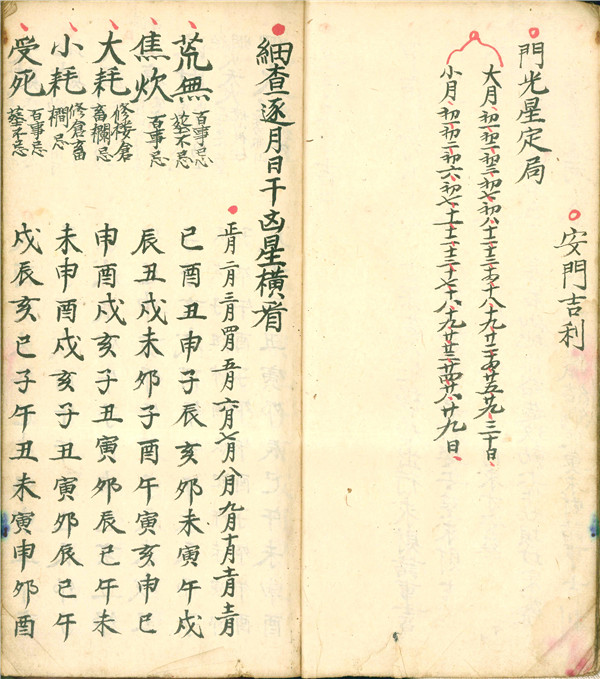 安門吉利
門光星定局
大月、初一、初二、初三、初七、初八、十二、十三、十四、十八、十九、二十、廿四、廿五、廿九、三十日、
小月、初一、初二、初六、初七、十一、十二、十三、十七、十八、十九、廿三、廿四、廿八、廿九日、
細查逐月日干凶星橫看
正月二月三月四月五月六月七月八月九月十月十一月十二月
荒無 百事忌塟不忌 巳酉丑申子辰亥卯未寅午戌
焦炊 百事忌 辰丑戌未卯子酉午寅亥申巳
大耗 修楼倉畜欄忌 申酉戌亥子丑寅卯辰巳午未
小耗 修倉畜欄忌 未申酉戌亥子丑寅卯辰巳午
受死 百事忌塟不忌 戌辰亥巳子午丑未寅申卯酉